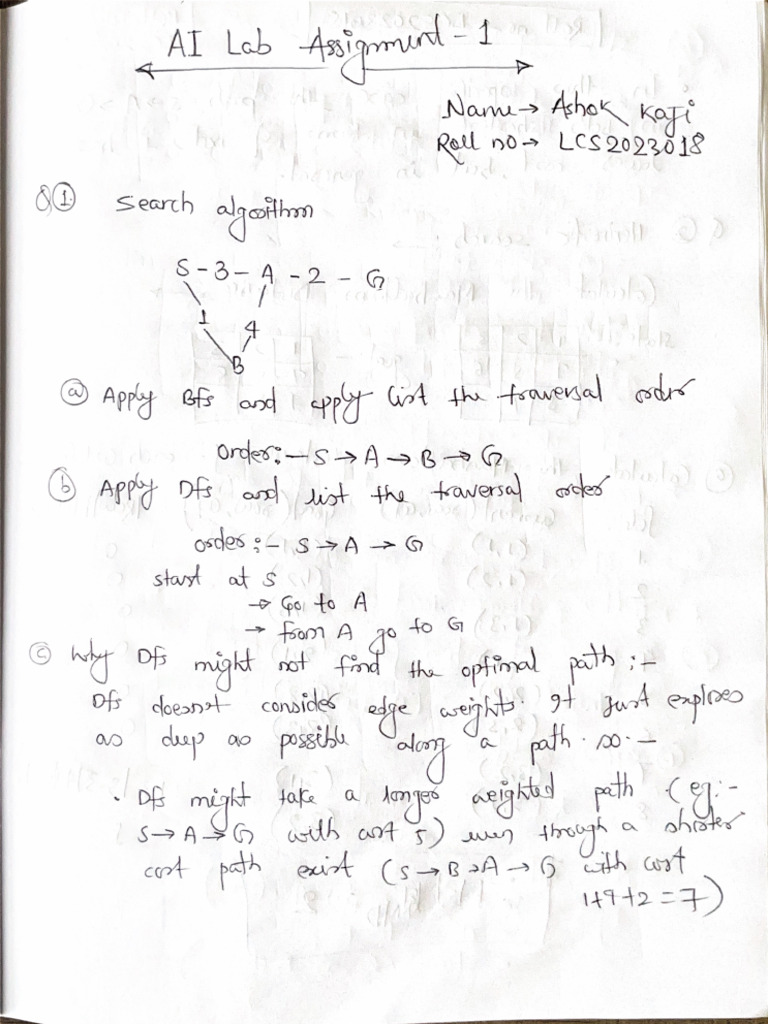 AI Lab Assignment - 1
Name → Ashok Kaji
Roll no → LCS2023018
Q ① Search algorithm
S - 3 - A - 2 - G
1 4
B
ⓐ Apply Bfs and apply list the traversal order
Order:- S → A → B → G
ⓑ Apply Dfs and list the traversal order
order:- S → A → G
start at S
→ Go to A
→ from A go to G
ⓒ Why Dfs might not find the optimal path :-
Dfs doesnot consider edge weights. It just explores
as deep as possible along a path. so. -
• Dfs might take a longer weighted path (eg:-
S → A → G with cost 5) even through a shorter
cost path exist (S → B → A → G with cost
1+4+2 = 7)